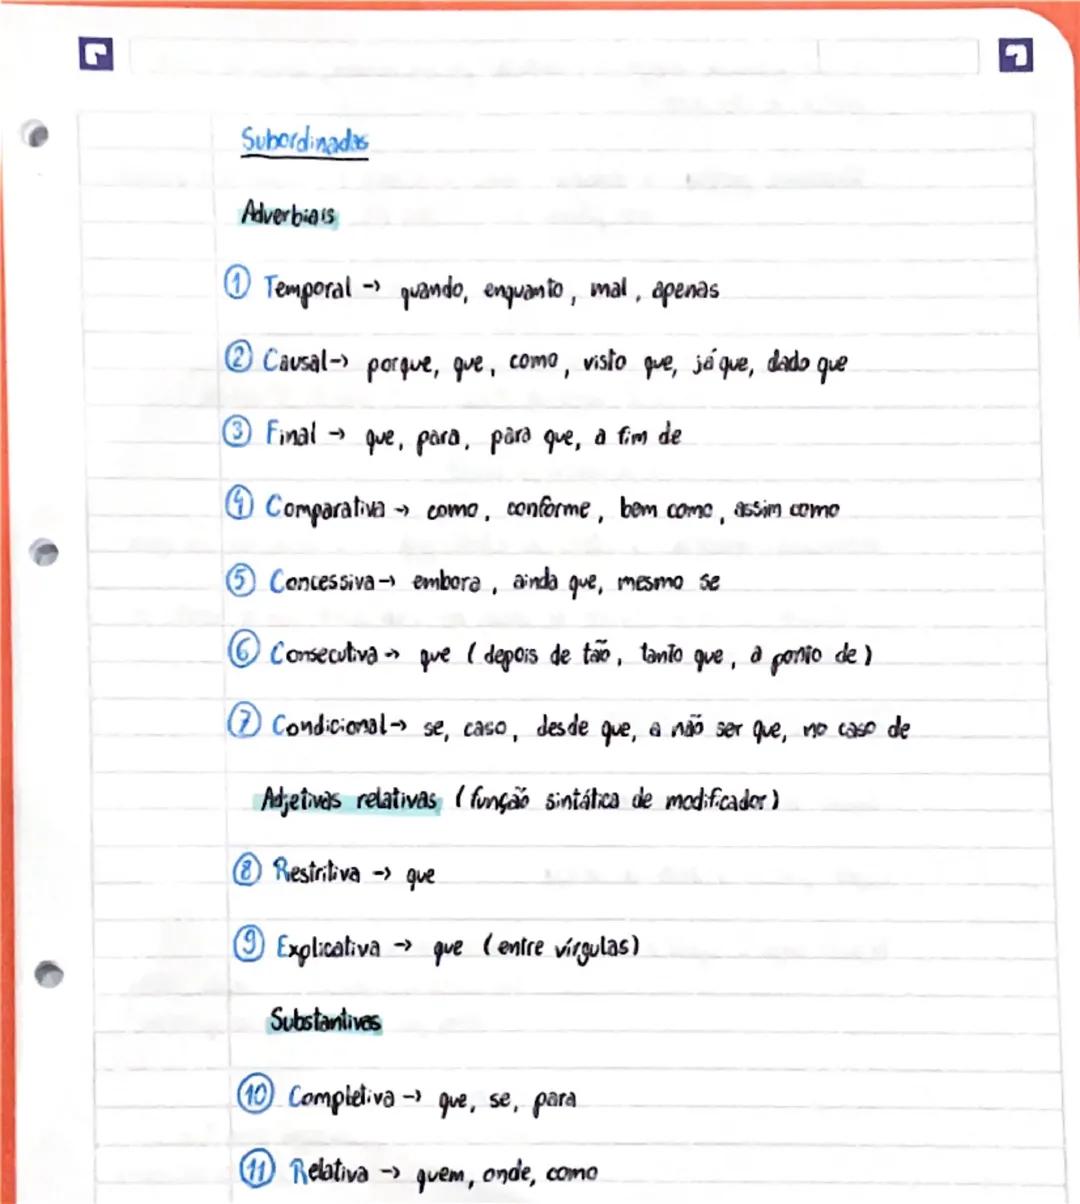 Subordinadas
Adverbiais
① Temporal → quando, enquanto, mal, apenas
② Causal → porque, que, como, visto que, já que, dado que
③ Final → que, para, para que, a fim de
④ Comparativa → como, conforme, bem como, assim como
⑤ Concessiva → embora, ainda que, mesmo se
⑥ Consecutiva → que (depois de tão, tanto que, a ponto de)
⑦ Condicional → se, caso, desde que, a não ser que, no caso de
Adjetivas relativas (função sintática de modificador)
⑧ Restritiva → que
⑨ Explicativa → que (entre vírgulas)
Substantivas
⑩ Completiva → que, se, para
⑪ Relativa → quem, onde, como